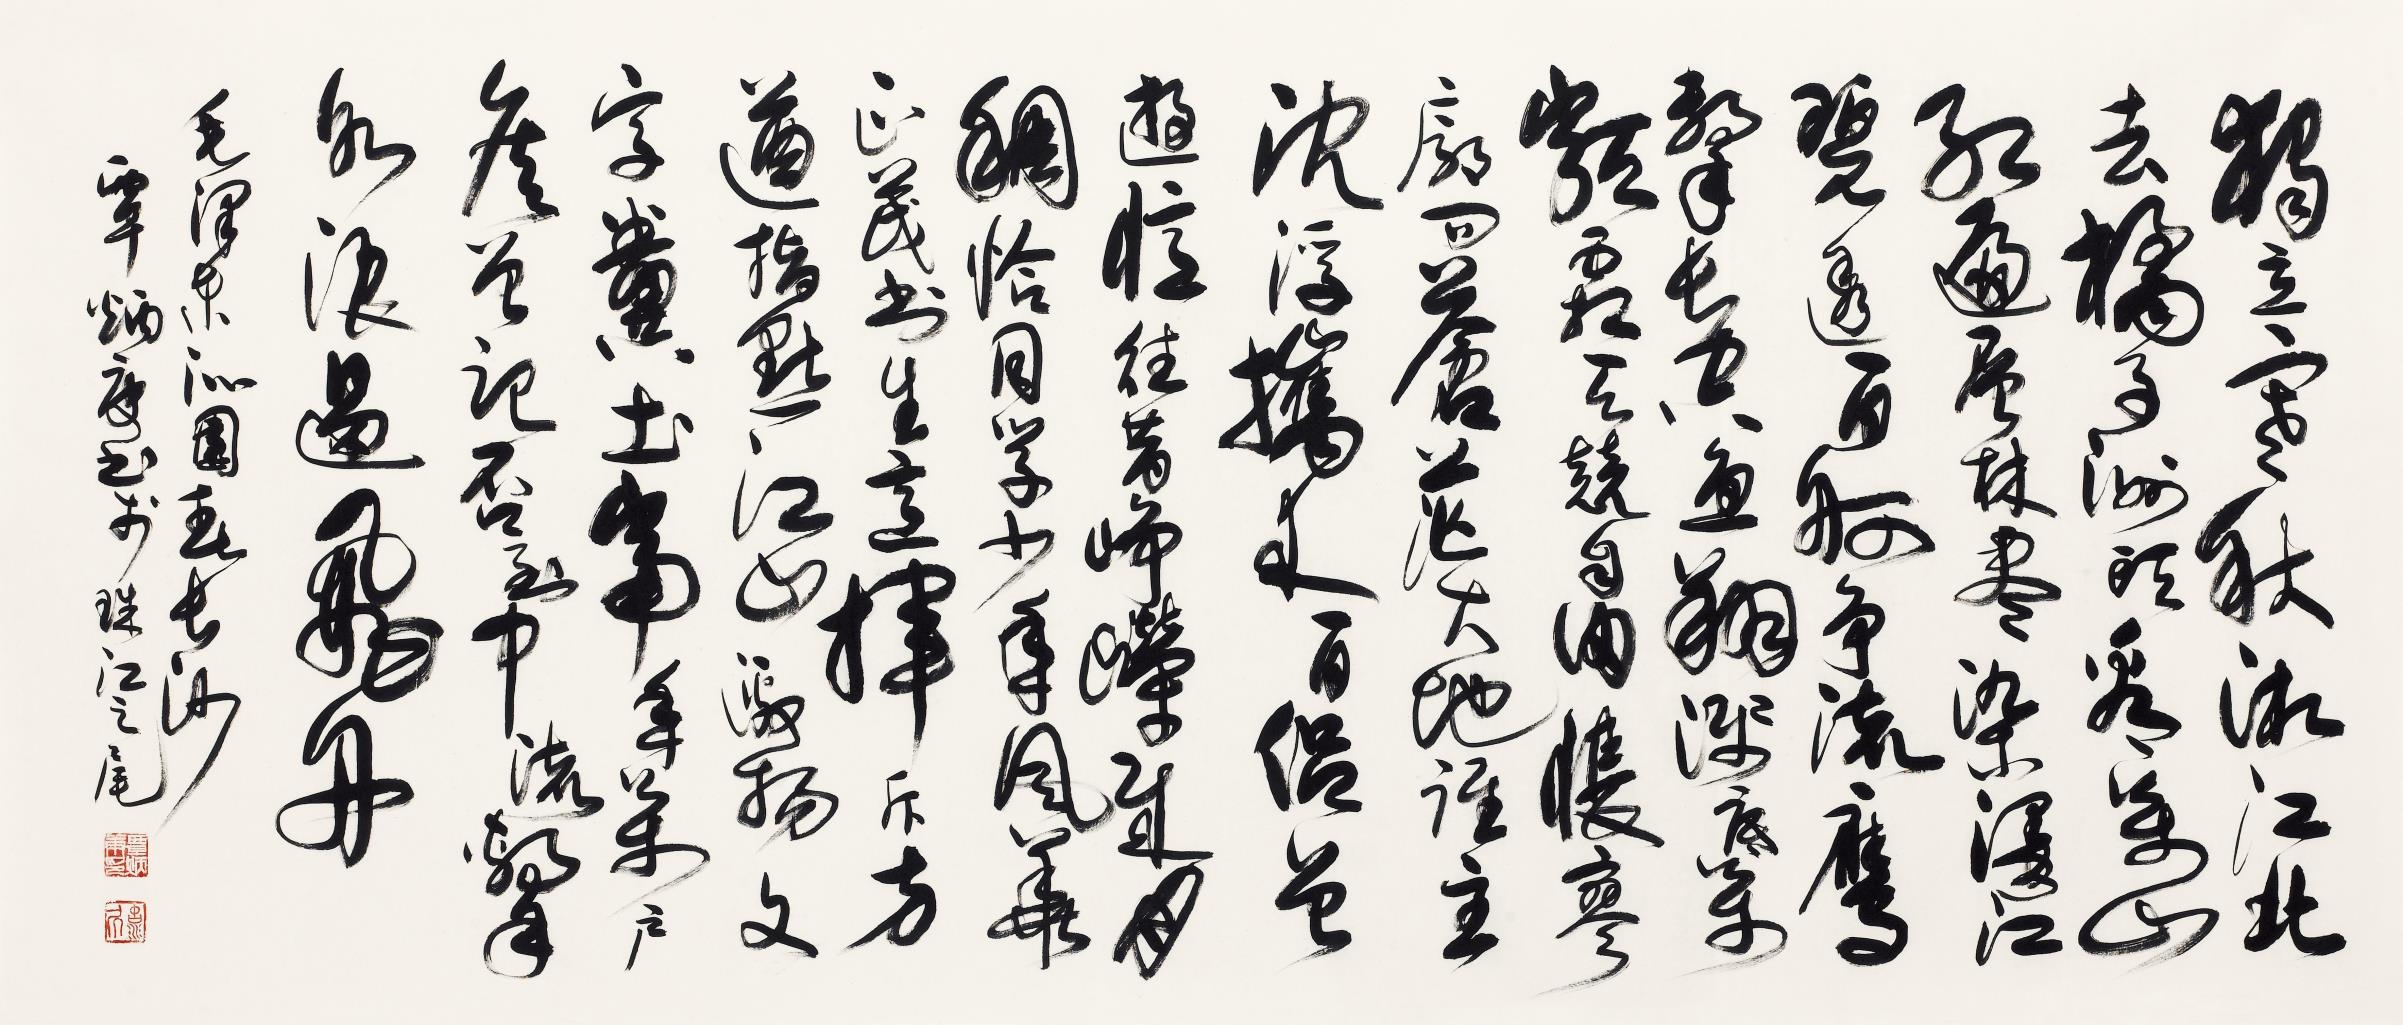 獨立寒秋湘江北
去橘子洲頭看萬山
紅遍层林盡染漫江
碧透百舸爭流鷹
擊長空魚翔淺底萬
類霜天競自由悵寥
廓問蒼茫大地誰主
沈浮攜來百侶曾
遊憶往昔崢嶸歲月
稠恰同學少年風華
正茂書生意揮斥方
遒指點江山激揚文
字糞土當年萬户
侯曾記否到中流擊
水浪遏飛舟
毛澤東沁園春長沙
覃炳庚書於珠江之尾